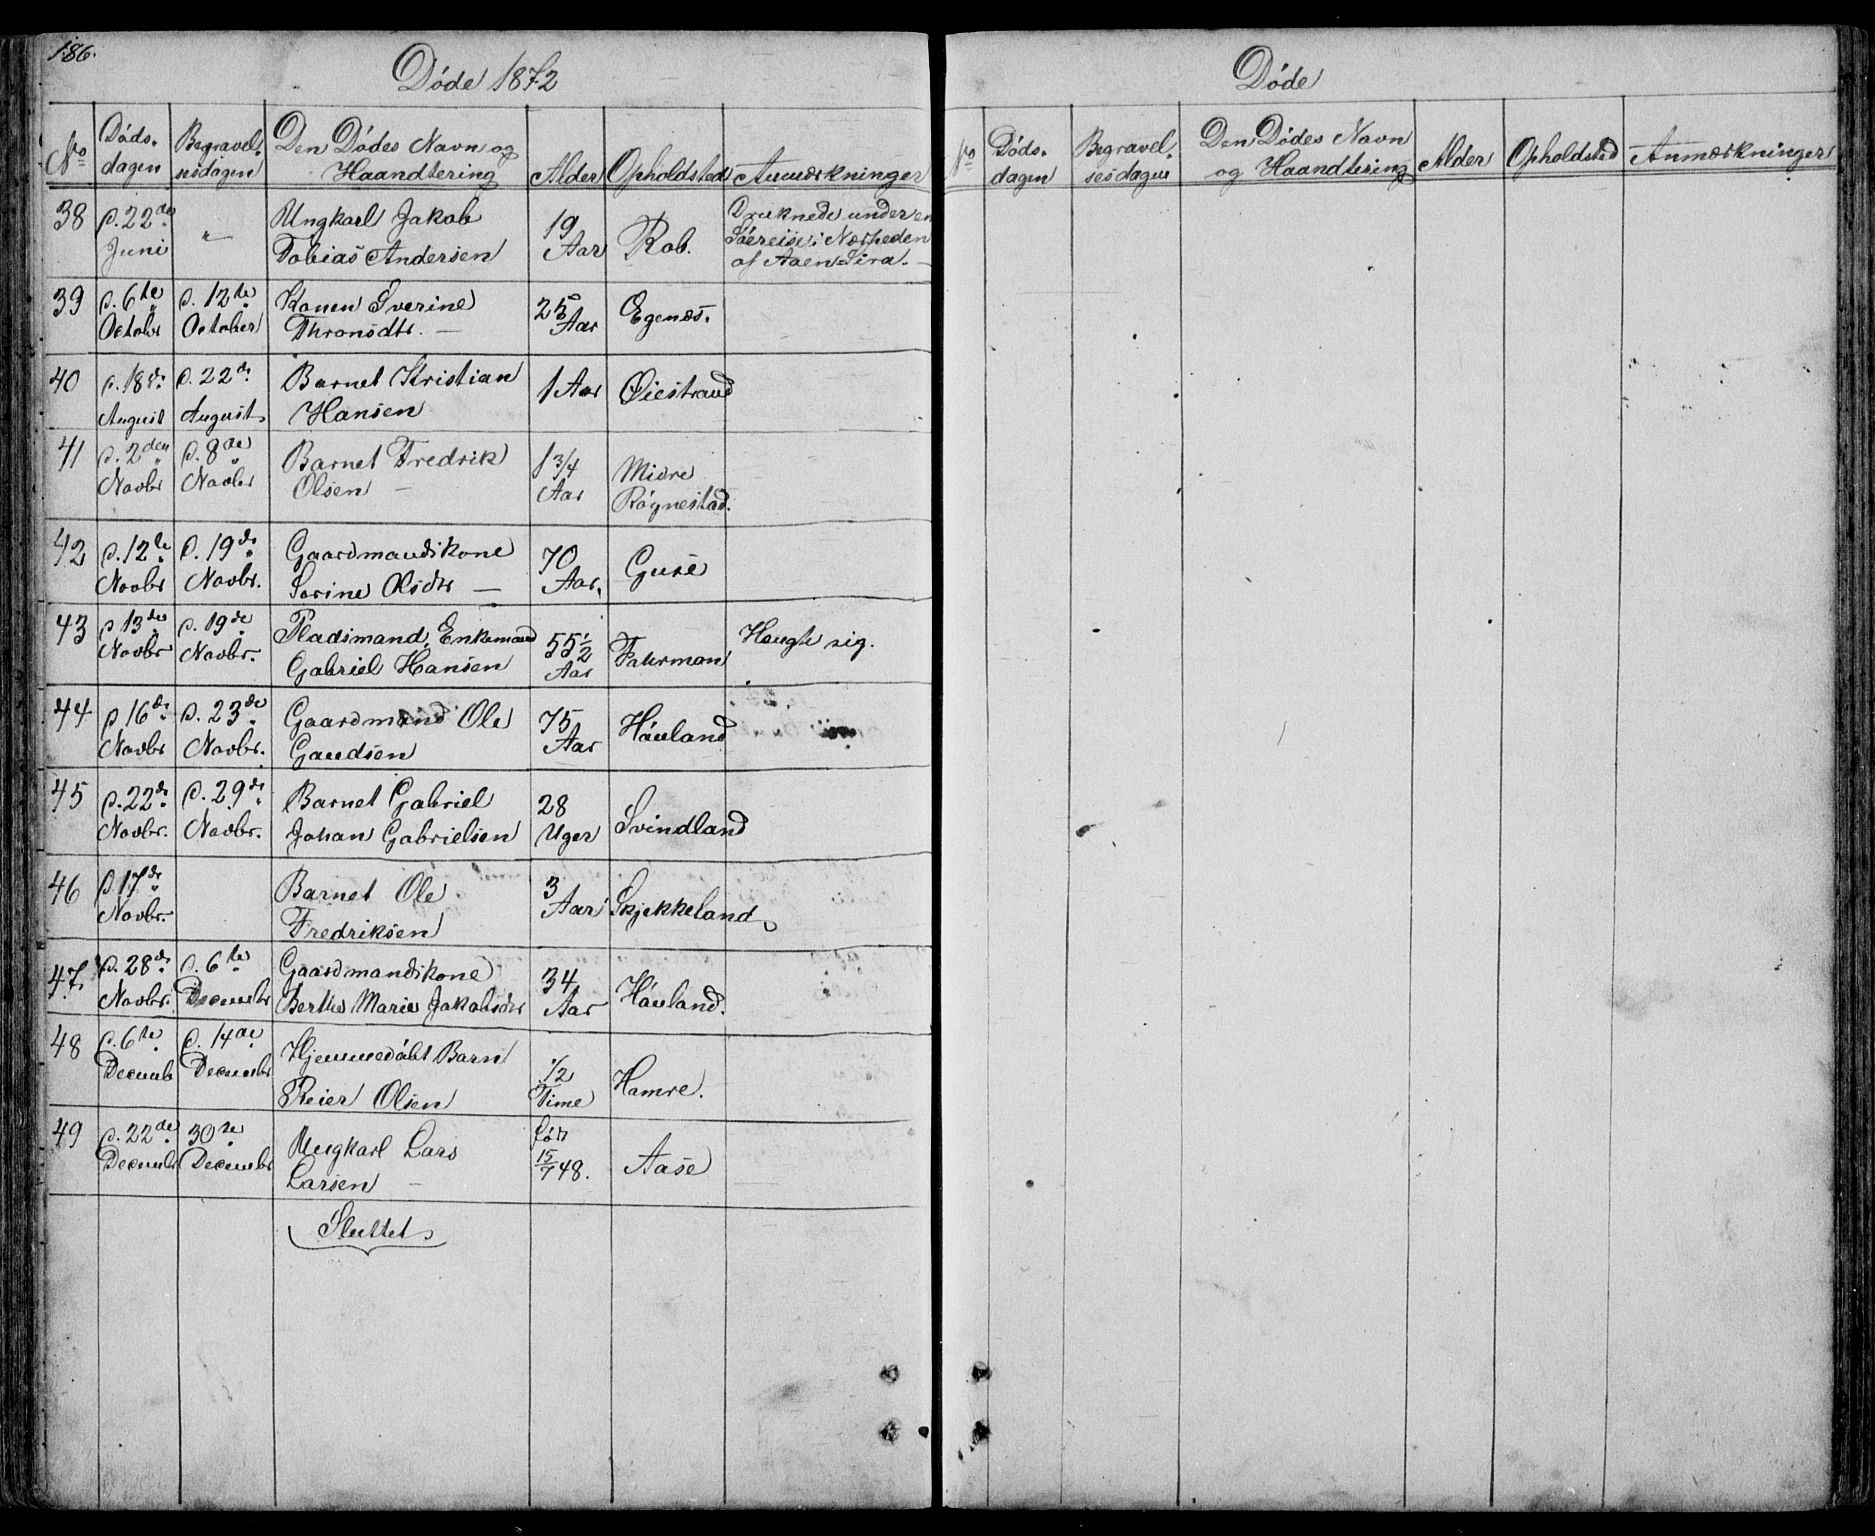 186.
Døde 1872
No Døds- dagen Begravel- sesdagen Den Dødes Navn og Haandtering Alder Opholdsted Anmærkninger
38 d. 22de Juni " Ungkarl Jakob Tobias Andersen 19 Aar Rob. Druknede under en Søereise i Nærheden af Aaen-Sira. -
39 d. 6te Octobr d. 12te October Konen Sverine Thronsdtr. - 25 Aar Egenæs.
40 d. 18de August d. 22de August Barnet Kristian Hansen 1 Aar Øiestrand
41 d. 2den Novbr d. 8de Novbr Barnet Fredrik Olsen - 1 3/4 Aar Midre Røgnestad.
42 d. 12te Novbr d. 19de Novbr. Gaardmandskone Sorine Olsdtr - 70 Aar. Guse
43 d 13de Novbr d. 19de Novbr. Pladsmand, Enkemand Gabriel Hansen 55 1/2 Aar Hengte sig.
44 d 16de Novbr d. 23de Novbr. Gaardmand Ole Gaudsen 75 Aar Høuland
45 d. 22de Novbr. d. 29de Novbr. Barnet Gabriel Johan Gabrielsen 28 Uger Svindland
46 d. 17de Novbr. Barnet Ole Fredriksen 3 Aar Skjekkeland
47. d. 28de Novbr. d. 6te Decembr Gaardmandskone Berthe Marie Jakobsdtr 34 Aar Høuland.
48 d. 6te Decemb d. 14de Decembr Hjemmedøbt Barn Reier Olsen 1/2 Time Hamre.
49 d. 22de Decembr 30te Decembr Ungkarl Lars Larsen - født 15/7 48. Aase
Sluttet
Døde
No Døds- dagen Begravel- sesdagen Den Dødes Navn og Haandtering Alder Opholdsted Anmærkninger